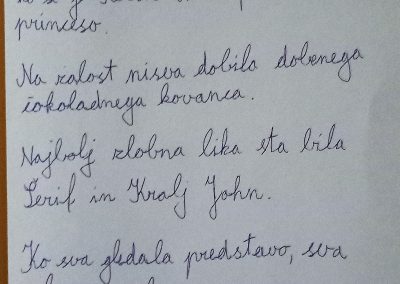 princeso.
Na žalost nisva dobila dobenega
čokoladnega kovanca.
Najbolj zlobna lika sta bila
Šerif in Kralj John.
Ko sva gledala predstavo, sva